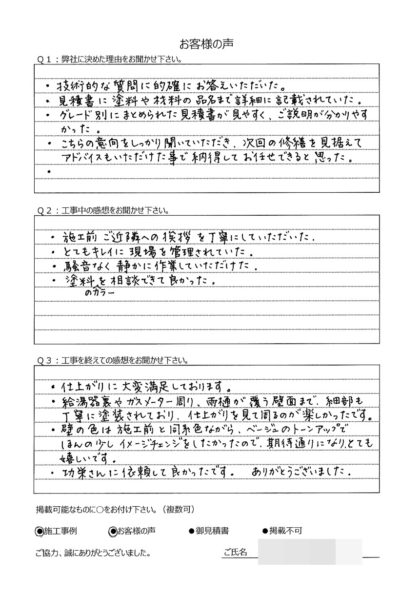 お客様の声
Q1：弊社に決めた理由をお聞かせ下さい。
・技術的な質問に的確にお答えいただいた。
・見積書に塗料や材料の品名まで詳細に記載されていた。
・グレード別にまとめられた見積書が見やすく、ご説明が分かりやす
かった。
・こちらの意向をしっかり聞いていただき、次回の修繕を見据えて
アドバイスもいただけた事で納得してお任せできると思った。
・
Q2：工事中の感想をお聞かせ下さい。
・施工前ご近隣への挨拶を丁寧にしていただいた.
・とてもキレイに現場を管理されていた。
・騒音なく静かに作業していただけた。
・塗料を相談できて良かった。
のカラー
Q3：工事を終えての感想をお聞かせ下さい。
・仕上がりに大変満足しております。
・給湯器裏やガスメーター周り、雨樋が覆う壁面まで、細部も
丁寧に塗装されており、仕上がりを見て回るのが楽しかったです。
・壁の色は施工前と同系色ながら、ベージュのトーンアップで
ほんの少しイメージチェンジをしたかったので、期待通りになり、とても
嬉しいです。
・功栄さんに依頼して良かったです。 ありがとうございました.
掲載可能なものに○をお付け下さい。（複数可）
●施工事例 ●お客様の声 ●御見積書 ●掲載不可
ご協力、誠にありがとうございました。 ご氏名